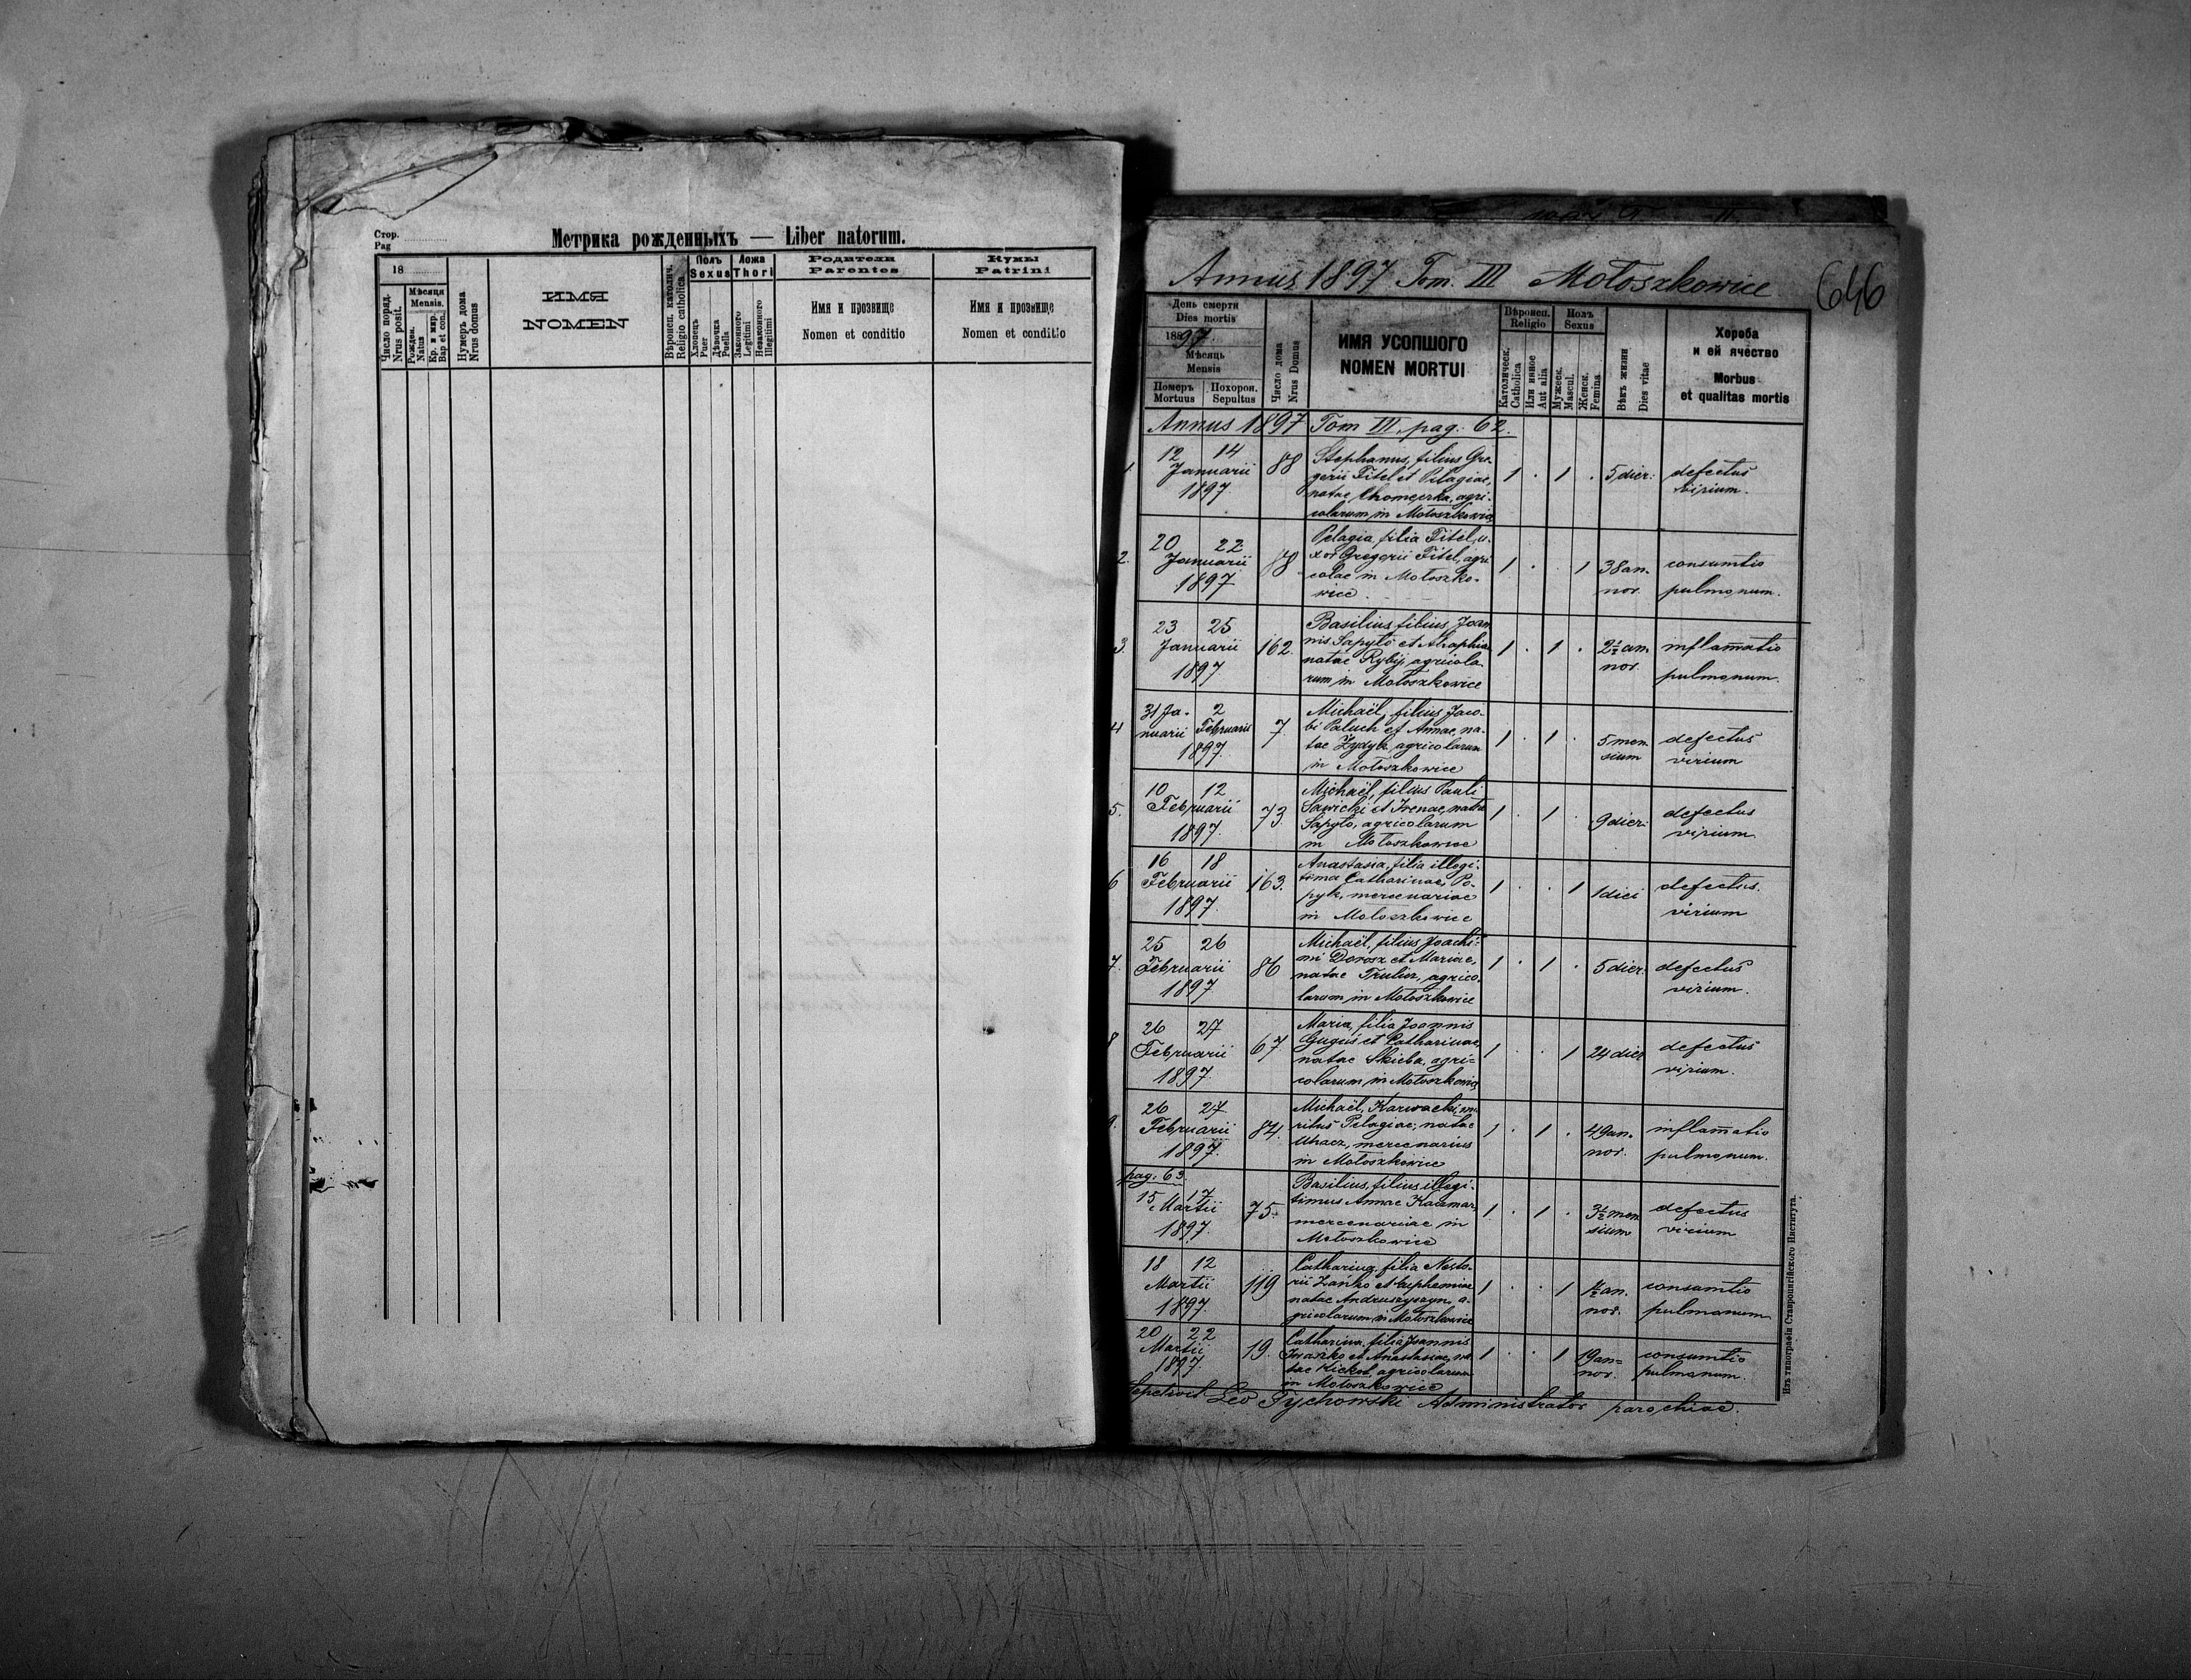 Стор.
Pag
Метрика рожденныхъ — Liber natorum.
18
Число поряд.
Nrus posit.
Мѣсяця
Mensis.
Рожден.
Natus
Кр. и мир.
Bap et con.
Нумеръ дома
Nrus domus
ИМЯ
NOMEN
Вѣроисп. католич.
Religio catholica
Полъ
Sexus
Хлопець
Puer
Дѣвочка
Puella
Ложа
Thori
Законного
Legitimi
Незаконного
Illegitimi
Родители
Parentes
Имя и прозвище
Nomen et conditio
Кумы
Patrini
Имя и прозвище
Nomen et conditio
Annus 1897 Tom. III Mołoszkowice
646
День смерти
Dies mortis
1897.
Мѣсяць
Mensis
Померъ
Mortuus
Похорон.
Sepultus
Число дома
Nrus Domus
ИМЯ УСОПШОГО
NOMEN MORTUI
Вѣроисп.
Religio
Католическ.
Catholica
Или инное
Aut alia
Полъ
Sexus
Мужеск.
Mascul.
Женск.
Femina
Вѣкъ жизни
Dies vitae
Хороба
и ей ячество
Morbus
et qualitas mortis
Annus 1897 Tom III pag: 62.
1 12 14 Januarii 1897. 88 Stephanus, filius Gre-
gorii Fitel et Pelagiae,
natae agri-
colarum in Mołoszkowice
1 . 1 . 5 dier: defectus
virium.
2. 20 22 Januarii 1897 88 Pelagia, filia Fitel, u-
xor Gregorii Fitel, agri
colae in Mołoszko-
wice
1 . . 1 38 an-
nor. consumtio
pulmonum.
3. 23 25 Januarii 1897 162. Basilius filius Joan
nis Sapyło et
natae Rybij, agricola-
rum in Mołoszkowice
1 . 1 . 2½ an.
nor inflam̄atio
pulmonum.
4 31 Ja-
nuarii 2 Februarii 1897. 7. Michaël, filius Jaco-
bi Paluch et Annae, na-
tae Zydyk, agricolarum
in Mołoszkowice
1 . 1 . 5 men
sium defectus
virium
5. 10 12 Februarii 1897. 73. Michaël, filius Pauli
Sawicki et Irenae, natae
Sapyło, agricolarum
in Mołoszkowice
1 . 1 . 9 dier: defectus
virium.
6 16 18 Februarii 1897. 163. Anastasia, filia illegi-
tima Catharinae Po-
pyk, mercenariae
in Mołoszkowice
1 . . 1 1 diei defectus.
virium
7. 25 26 Februarii 1897 86 Michaël, filius Joachi-
mi Dorosz et Mariae,
natae agrico-
larum in Mołoszkowice
1 . 1 . 5 dier. defectus
virium.
8 26 27 Februarii 1897. 67 Maria, filia Joannis
Guguś et Catharinae,
natae Skiba, agri-
colarum in Mołoszkowice
1 . . 1 24 dier defectus
virium.
9. 26 27 Februarii 1897. 84. Michaël, Karwacki, ma-
ritus Pelagiae, natae
Uhacz, mercenarius
in Mołoszkowice
1 . 1 . 49 an.
nor. inflam̄atio
pulmonum.
pag: 63.
15 17 Martii 1897. 75. Basilius, filius illegi-
timus Annae Kaczmar,
mercenariae in
Mołoszkowice
1 . 1 . 3½ men
sium defectus
virium
18 12 Martii 1897. 119 Catharina, filia Nesto-
rii Łańko et Euphemiae
natae Andruszyszyn, a-
gricolarum in Mołoszkowice
1 . . 1 an.
nor. consumtio
pulmonum
20 22 Martii 1897. 19. Catharina, filia Joannis
Iwaszko et Anastasiae, na
tae Kickot, agricolarum
in Mołoszkowice
1 . . 1 19 an-
nor. consumtio
pulmonum.
Leo Tychowski Administrator parochiae.
Изъ типографіи Ставропигійского Института.